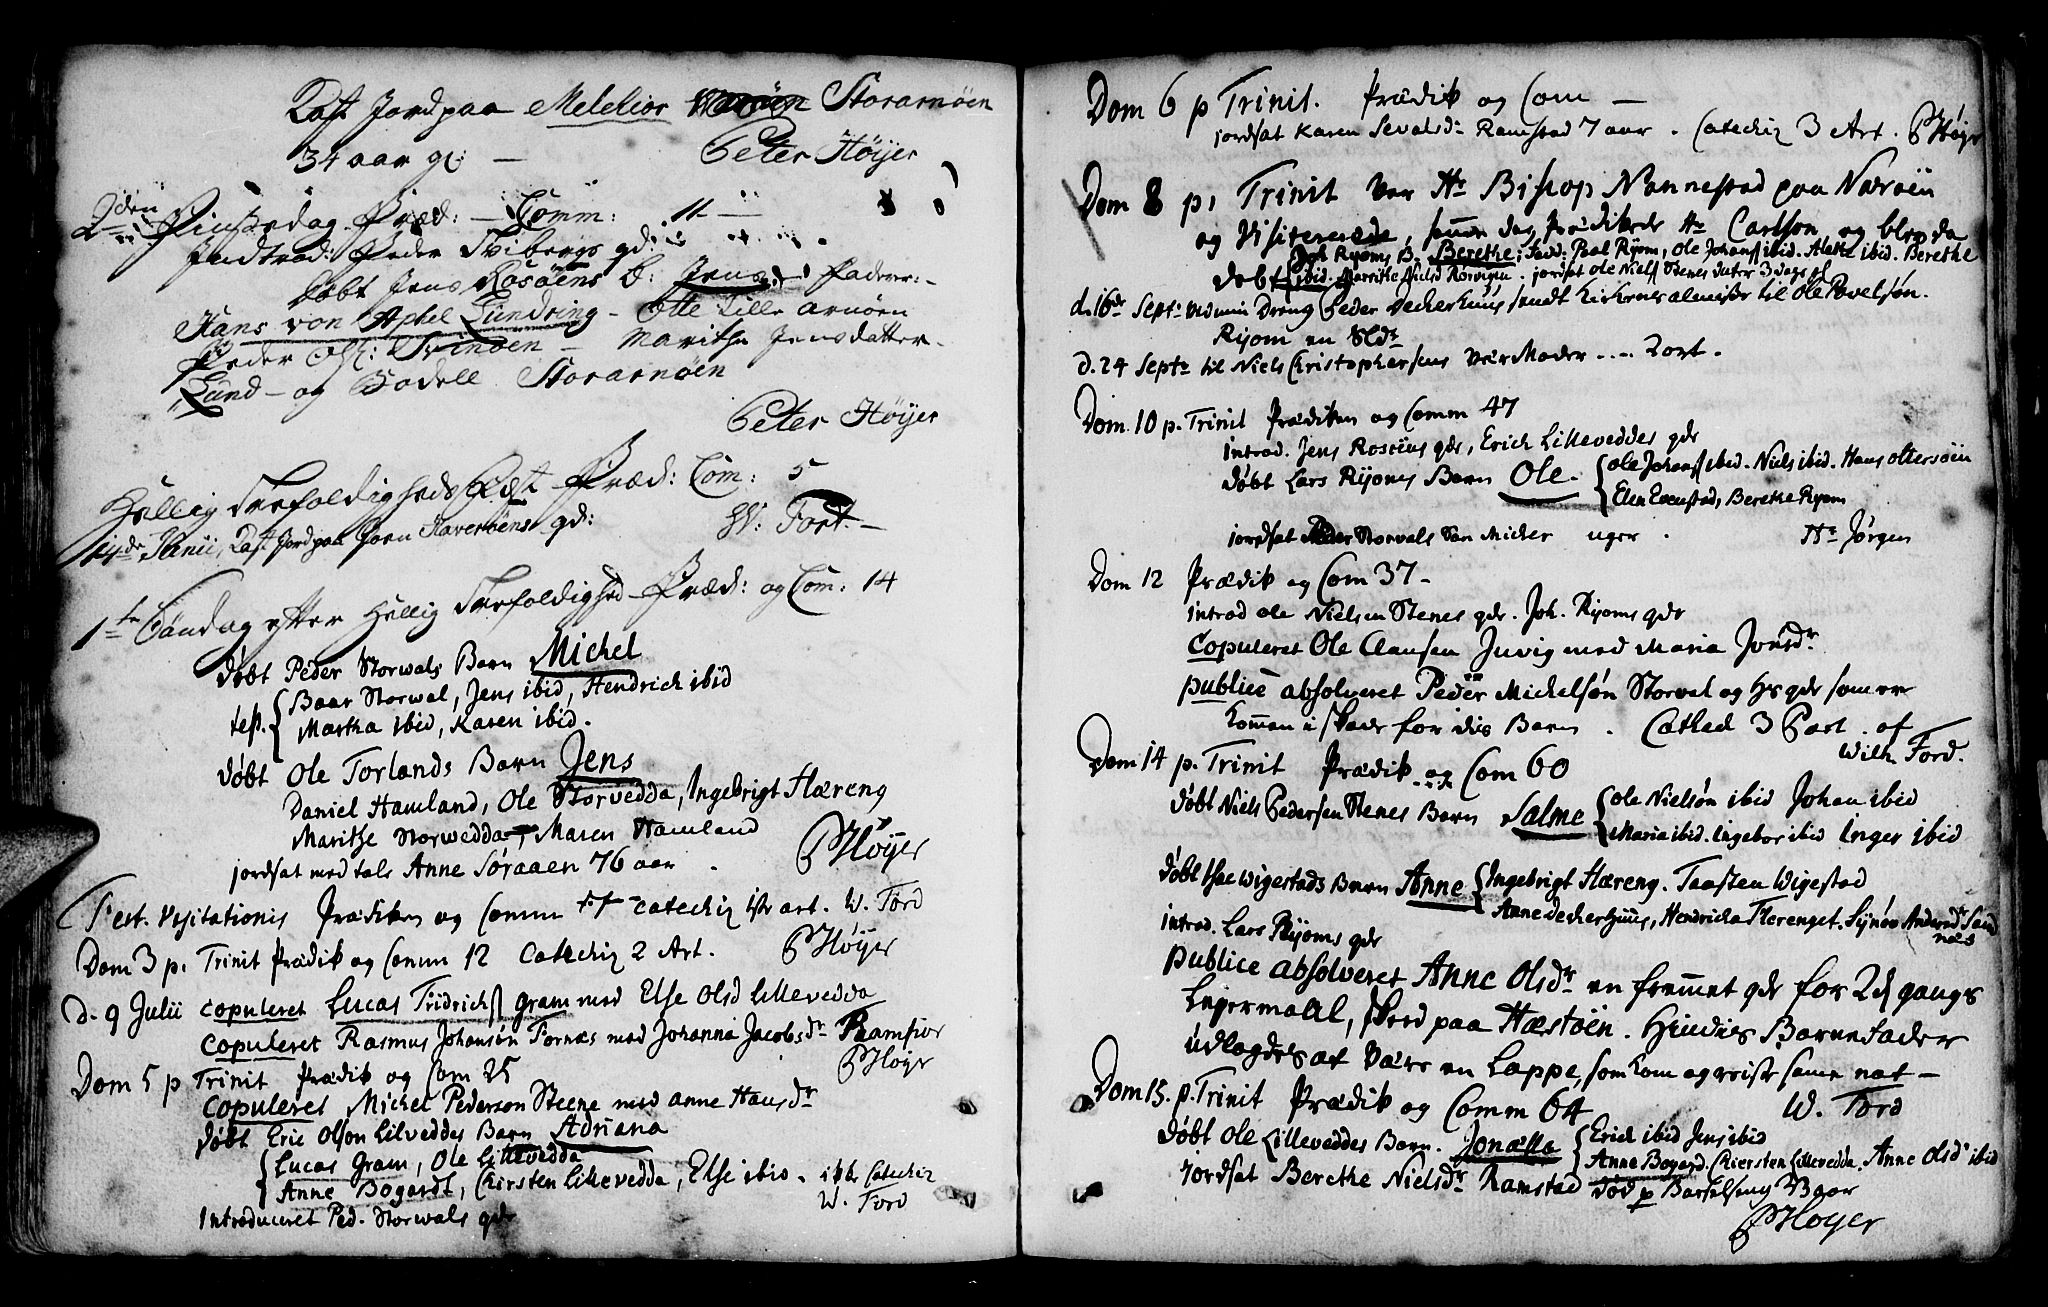 Kast Jord paa Melchior Storarnøen
34 aar gl: — Peter Höÿer
2den Pintsedag Præd: — Comm: 11 —
Indtrod: Peder Svibergs gd:
døbt Jens Rosöens B: Jens Faddere:
Hans von Aphel Lundring — Otte Lille Arnöen
Peder Ols: Svinöen — Marithe Jensdatter
Lund — og Bodell Storarnöen
Peter Höÿer
Hellig Trefoldigheds Fest Præd: Com: 5
14de Junii, Kast Jord paa Haveröens gd: W: Fort —
1te Söndag efter Hellig Trefoldighed — Præd: og Com: 14
døbt Peder Storwals Barn Michel
test. Baar Storwal, Jens ibid, Hendrich ibid
Martha ibid, Karen ibid.
døbt Ole Torlands Barn Jens
Daniel Hamland, Ole Storvedda, Ingebrigt Hæreng
Marithe Storwedda, Maren Hamland
jordsat med tale Anne Søraaen 76 aar . PHöÿer
Fest. Visitationis Prædiken og Comm catechiz 1ste art. W. Ford
Dom 3 p. Trinit Prædik og Comm 12 Catechiz 2 Art. PHöÿer
D. 9 Julii copuleret Lucas Fridrichs gram med Else Olsd Lillevedda
Copuleret Rasmus Johansøn Fornæs med Johanna Jacobsdr Ramfior
Dom 5 p Trinit Prædik og Com 25 PHöÿr
Copuleret Michel Pedersøn Steene med anne Hansdr
døbt Eric Olson Lilveddes Barn Adriana
Lucas Gram, Ole Lillevedda
Anne Bogardt, Chirsten Lillevedda, Else ibid. Catechiz
Introduceret Ped. Storwals qdr W. Ford
Dom 6 p Trinit. Prædik og Com —
jordsat Karen Sevaldsdr Ramstad 7 aar . Catechiz 3 Art. PHöÿr
Dom 8 p. Trinit var Hr Bishop Nannestad paa Nærøen
og Visiterede, samme dag prædikede Hr Carlson, og blev da
døbt Joh Ryoms B. Berethe, Fadd: Poal Ryom, Ole Johanss ibid. ibid. Berethe
ibid. Marithe Nielsd . jordsat Ole Nielss Stenes dater 3 dage gl
d. 16de Septr ved min Dreng Peder Decherhuus sendt Kirkens almisse til Ole Povelsøn.
Ryom en
d. 24 Septr til Niels Christophersens Moder .... 2 ort.
Dom. 10 p. Trinit Prædiken og Comm 47
Introd. Jens Rosøens qdr, Erich Lilleveddes qdr
døbt Lars Ryoms Barn Ole. Ole Johanss ibid. Niels ibid. Hans oltersøin
Elen Evenstad, Berethe Ryom
jordsat Storvals Søn Michel uger . Hr Jørgen
Dom 12 Prædik og Com 37 —
Introd ole Nielsen Stenes qdr. Joh. Ryoms qdr
Copuleret Ole Aansen Juvig med Maria Jonsdr
publice absolveret Peder Michelsøn Storval og hs qdr som er
Kommen i skade for dies Barn . Cathed 3 Part . af
Wilh Ford.
Dom 14 p. Trinit Prædik og Com 60
døbt Niels Pedersen Stenes Barn Salme Ole Nielsøn ibid Johan ibid
Maria ibid. Ingebor ibid Inger ibid
døbt Wigestads Barn Anne Ingebrigt Hæreng. Taasten Wigestad
Anne Decherhuus, Hendricha Flerenget. Synøv Sand
næs
introd. Lars Ryoms qdr
publice absolveret Anne Olsdr en fremmet qdr for 2d gangs
Legermaal, skeed paa Hæstøen. Hendes Barnefader
udlagdes at være en Lappe, som kom og reiste same nat —
Dom 15. p. Trinit Prædik og Comm 64 W. Ford
døbt Ole Lilleveddes Barn. Jonetta Erich ibid Jens ibid
Anne Bogard. Chiersten Lillevedda. Anne Olsdr ibid
jordsat Berethe Nielsdr Ramstad død p Barselseng aar
PHöyer